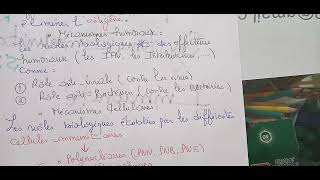 éliminer l'antigène.
* Mécanismes humoraux:
Les rôles biologiques des effecteurs
humoraux (les IFN, les Interleukines, ...)
Comme:
① Rôle anti-virale (contre les virus)
② Rôle anti-Bactérien (contre les bactéries)
* Mécanismes cellulaires:
Les rôles biologiques établies par les différentes
cellules immunitaires
* Polynucléaires (PNN, PNB, PNE)